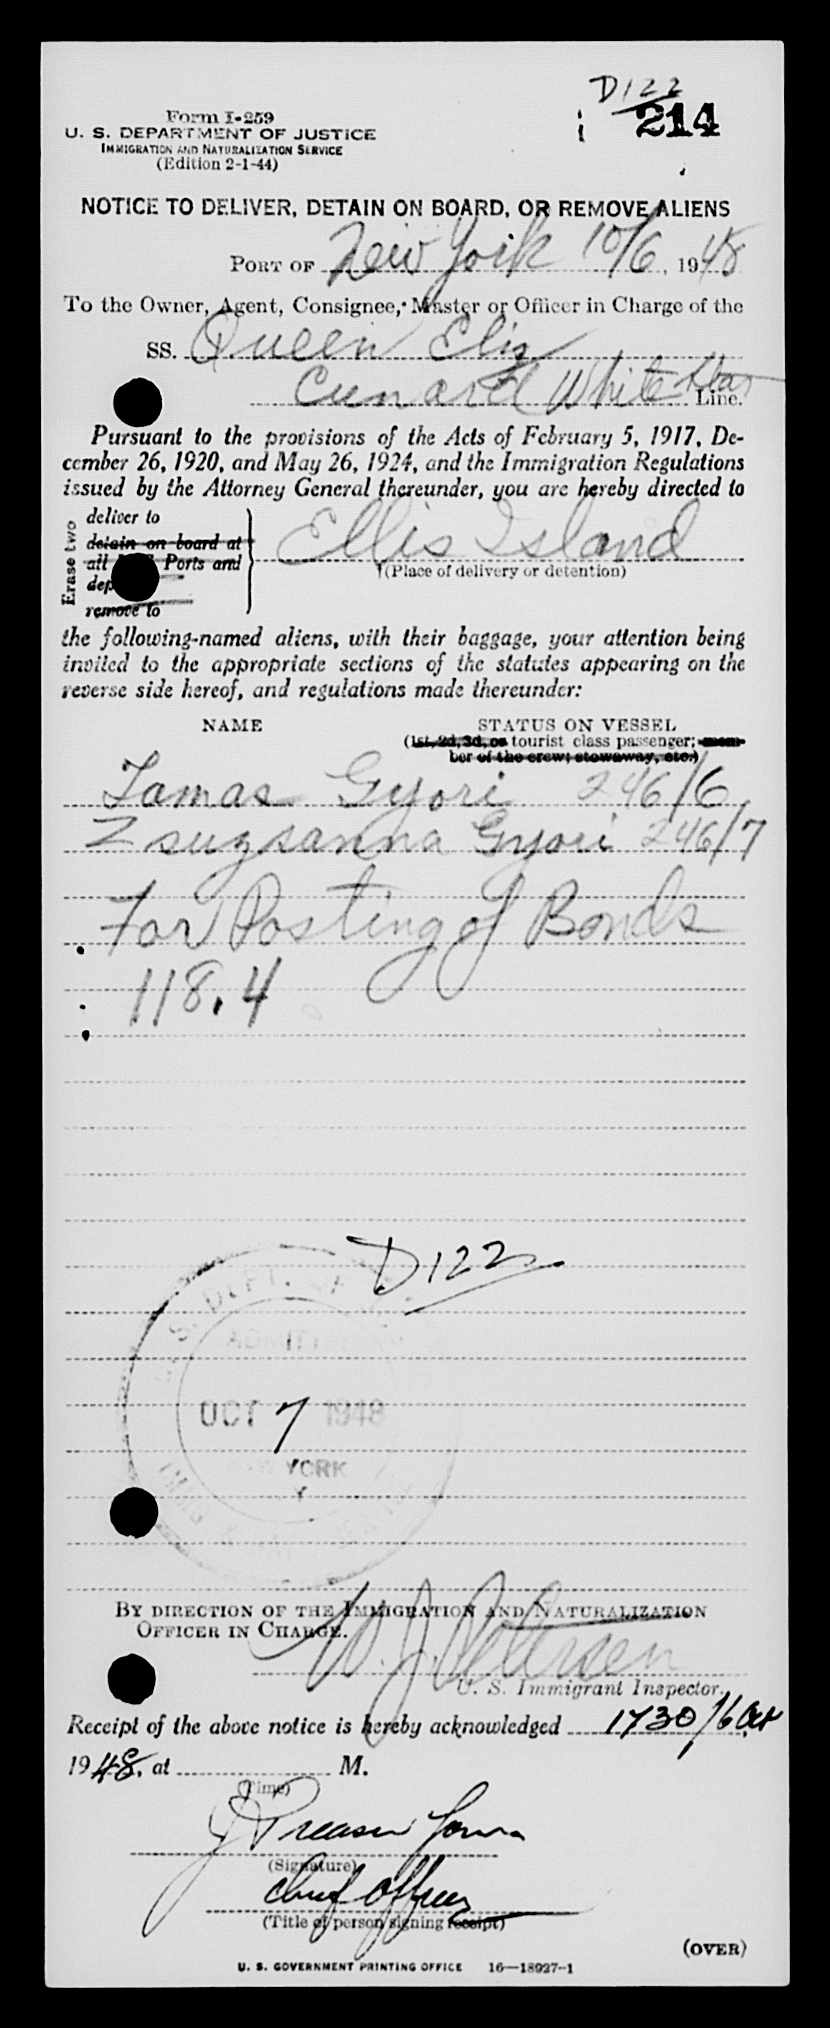 D122
214
Form I-259
U. S. DEPARTMENT OF JUSTICE
IMMIGRATION AND NATURALIZATION SERVICE
(Edition 2-1-44)
NOTICE TO DELIVER, DETAIN ON BOARD, OR REMOVE ALIENS
PORT OF New York 10/6, 1948
To the Owner, Agent, Consignee, Master or Officer in Charge of the
SS. Queen Eliz
Cunard White Star Line.
Pursuant to the provisions of the Acts of February 5, 1917, De-
cember 26, 1920, and May 26, 1924, and the Immigration Regulations
issued by the Attorney General thereunder, you are hereby directed to
Erase two
deliver to
detain on board at
all Ports and
remove to
Ellis Island
(Place of delivery or detention)
the following-named aliens, with their baggage, your attention being
invited to the appropriate sections of the statutes appearing on the
reverse side hereof, and regulations made thereunder:
NAME STATUS ON VESSEL
(1st, 2d, 3d, or tourist class passenger; mem-
ber of the crew; stowaway, etc.)
Tamas Gyori 246/6
Zsuzsanna Gyori 246/7
For Posting of Bonds
118.4
D122
U. S. DEPT. OF
ADMITTED
OCT 7 1948
NEW YORK
BY DIRECTION OF THE IMMIGRATION AND NATURALIZATION
OFFICER IN CHARGE.
W. J. Petersen
U. S. Immigrant Inspector.
Receipt of the above notice is hereby acknowledged 1730/6 Oct
1948, at M.
(Time)
(Signature)
Chief Officer
(Title of person signing receipt)
(OVER)
U. S. GOVERNMENT PRINTING OFFICE 16—18927-1